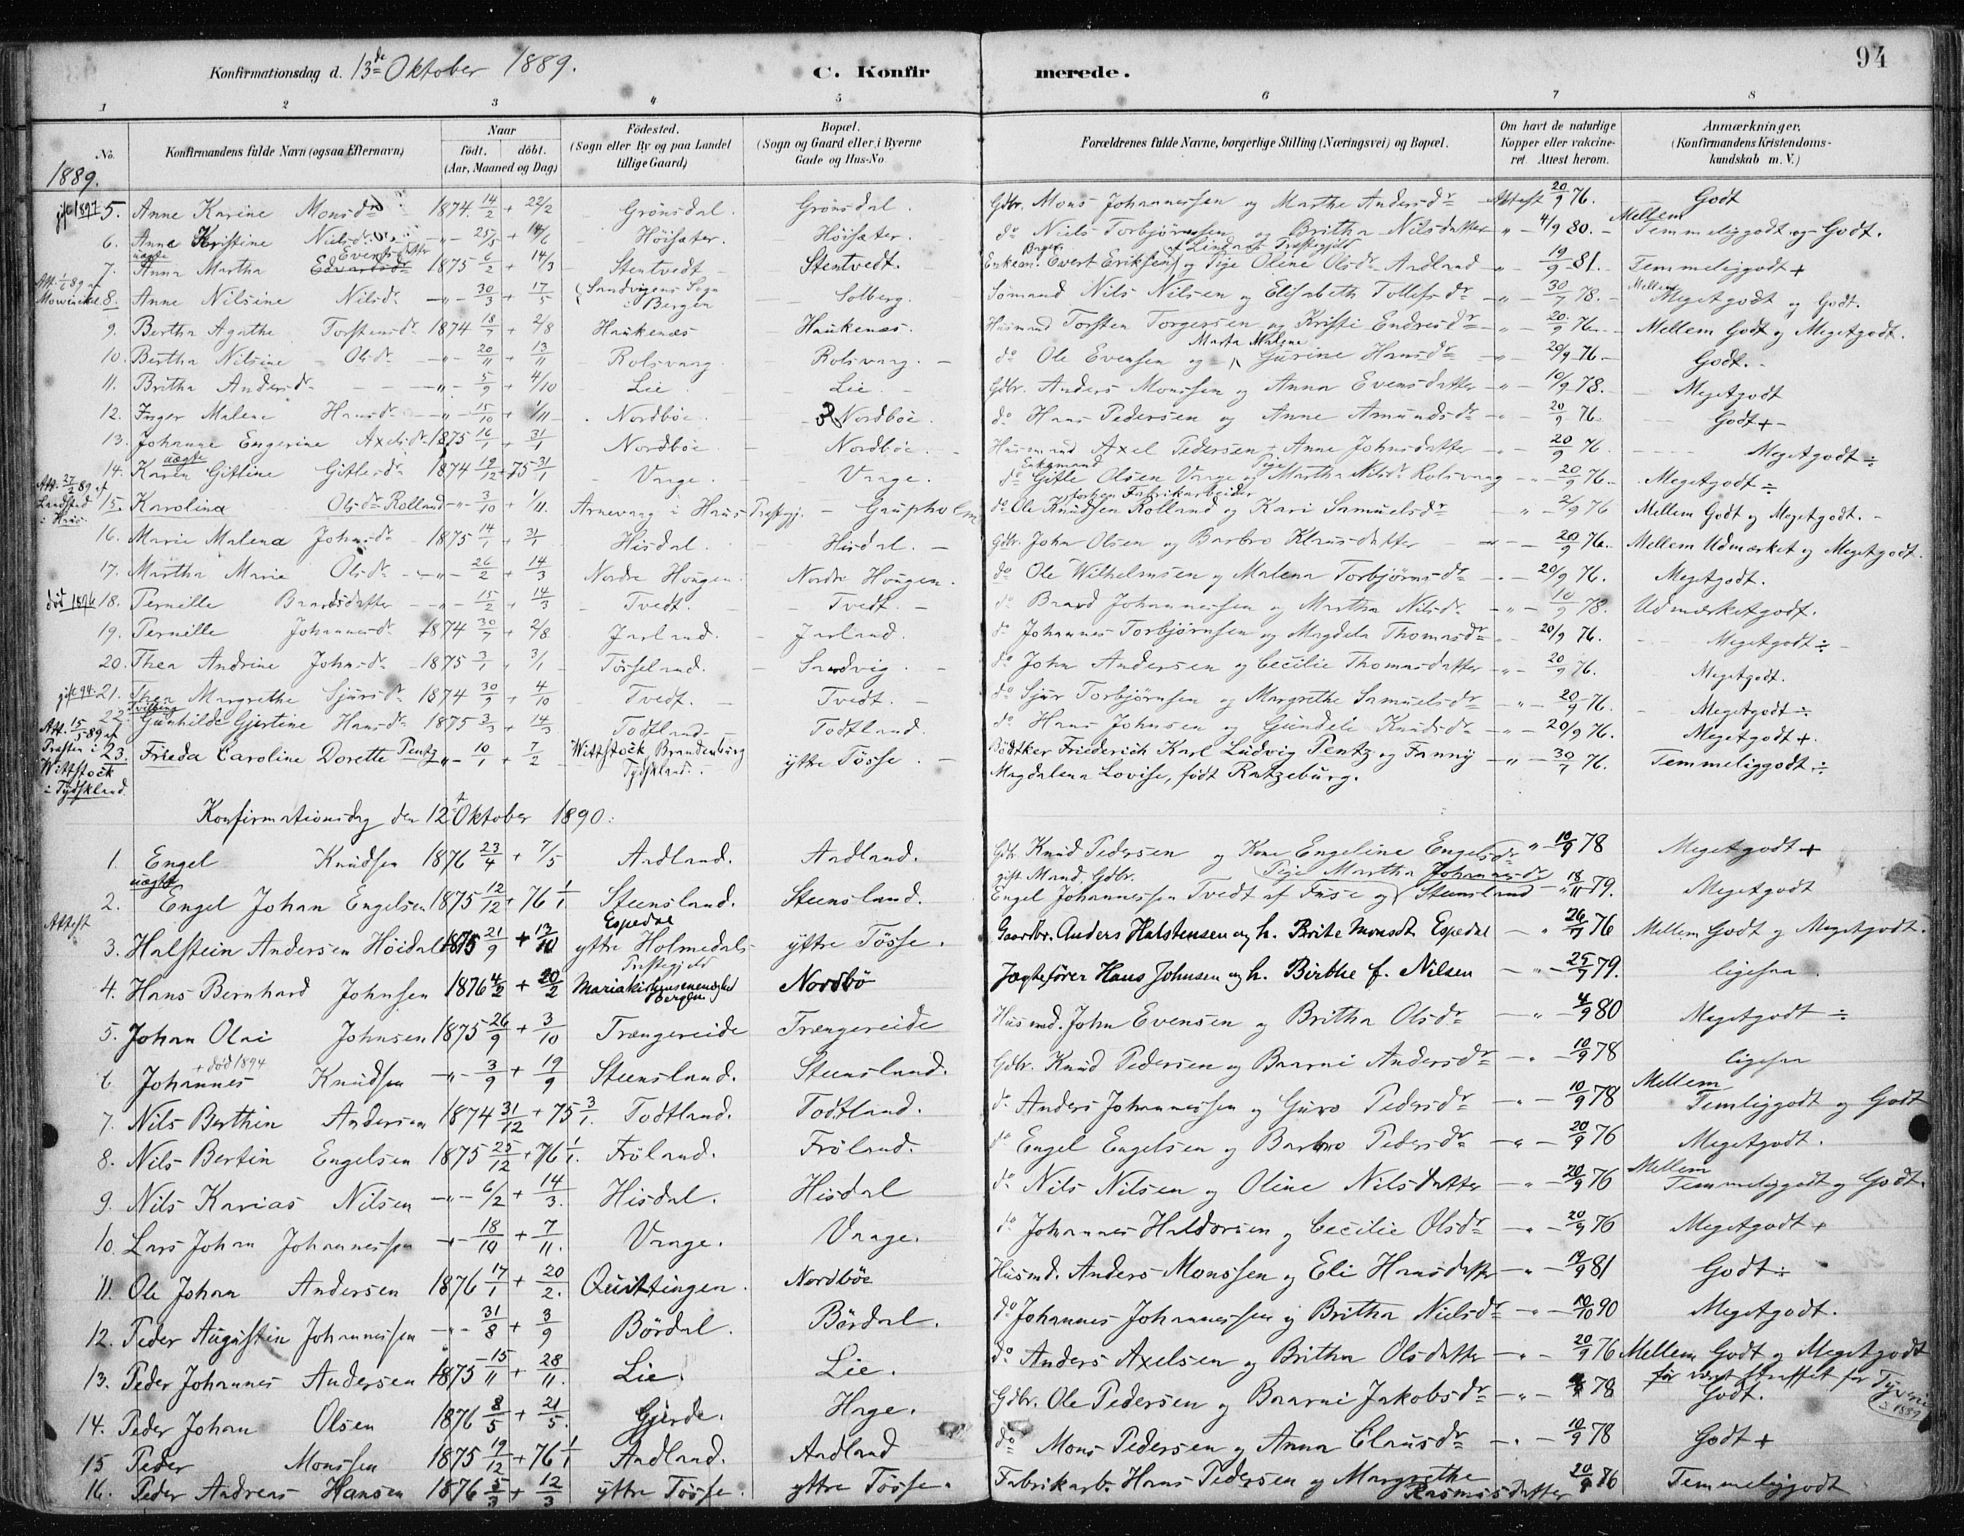 94
Konfirmationsdag d. 13de Oktober 1889. C. Konfirmerede.
1 2 3 4 5 6 7 8
No. Konfirmandens fulde Navn (ogsaa Efternavn) Naar født. døbt. (Aar, Maaned og Dag) Födested. (Sogn eller By og paa Landet tillige Gaard) Bopæl. (Sogn og Gaard eller i Byerne Gade og Hus-No Forældrenes fulde Navne, borgerlige Stilling (Næringsvei) og Bopæl. Om havt de naturlige Kopper eller vaccineret Attest herom. Anmærkninger. (Konfirmandens Kristendomskundskab m. V.)
1889.
gift 1897 5. Anne Karine Monsdr 1874 14/2 + 22/2 Grönsdal. Grönsdal. Gdbr. Mons Johannessen og Marthe Andersdr Attest 20/9 76. Godt
6. Anna Kristine Nielsdr -"- 25/5 + 14/6 Höisæter. Höisæter. do Niels Torbjørnsen og Britha Nilsdatter " - 4/9 80. - Mellem Temmeliggodt og Godt.
7. uægte Anna Martha Edvardsdr Evertsdatter 1875 6/2 + 14/3 Stentvedt Stentvedt. Enkem. Evert Eriksen og Pige Oline Olsdr Aadland af Lindaas Præstegjeld " - 19/9 81. Temmeliggodt +
Att. 1/6 89 af Mowinckel 8. Anne Nilsine Nilsdr -"- 30/3 + 17/5 (Sandvigens Sogn i Bergen Solberg. Sømand Nils Nilsen og Elisabeth Tollefsdr " - 30/7 78. - Mellem Megetgodt og Godt.
9. Bertha Agathe Torstensdr 1874 18/7 + 2/8 Haukenæs - Haukenæs. Husmand Torsten Torgersen og Kristi Endresdr " - 20/9 76. - Mellem Godt og Megetgodt.
10. Bertha Nilsine Olsdr -"- 20/11 + 13/11 Rolsvaag - Rolsvaag. - do Ole Evensen og Marta Malene Gurine Hansdr " - 20/9 76 - Godt. -
11. Britha Andersdr -"- 5/9 + 4/10 Lie - Lie - Gdbr. Anders Monsen og Anna Evensdatter " - 10/9 78. - Megetgodt
12. Inger Malene Hansdr -"- 15/10 + 1/11 Nordböe. Nordböe. do Hans Pedersen og Anne Amundsdr " 20/9 76. Godt + -
13. Johanne Engerine Axelsdr 1875 16/1 + 31/1 Nordböe Nordböe. - Husmand Axel Pedersen + Anne Johnsdatter " - 20/9 76 Megetgodt ÷
14. uægte Karen Gitline Gitlesdr 1874 19/12 + 75 31/1 Vaage. Vaage. do Enkemand Gitle Olsen Vaage og Pige Martha Nilsdr Rolsvaag " - 20/9 76. Megetgodt ÷
Att. 27/2 89 af Landstad i Haus. 15. Karolina Olsdr Rolland -"- 3/10 + 1/11. Arnevaag i Haus Præstegj. - Gaupholm do Ole Knudsen Rolland forhen Fabrikarbeider og Kari Samuelsdr " - 2/9 76 Mellem Godt og Megetgodt. -
16. Marie Malena Johnsdr 1875 14/1 + 31/1 Hisdal. Hisdal. - Gdbr. John Olsen og Barbro Klausdatter " - 20/9 76. Mellem Udmærket og Megetgodt.
17. Martha Marie Olsdr -"- 26/2 + 14/3 Nordre Hougen. Nordre Hougen. do Ole Wilhelmsen og Malena Torbjørnsdr - 20/9 76. Megetgodt.
död 1896 18. Pernille Baardsdatter -"- 15/2 + 14/3 - Tvedt. - Tvedt. - do Baard Johannessen og Martha Nilsdr " - 10/9 78. Udmærketgodt.
19. Pernille Johannesdr 1874 30/7 + 2/8 Jarland. - Jarland. do Johannes Torbjørnsen og Magdela Thomasdr " 20/9 76. Megetgodt ÷
20. Thea Andrine Johnsdr 1875 3/1 + 3/1 - Tösseland. - Sandvig. - do John Andersen og Cecilie Thomasdatter " - 20/9 76. Megetgodt.
gift 94. 21. Thea Margrethe Sjursdr 1874 30/9 + 4/10 Tvedt. - Tvedt. - do Sjur Torbjørnsen og Margrethe Samuelsdr " - 20/9 76. Megetgodt ÷
22. Tvilling Gunhilde Gjertine Hansdr 1875 3/3 + 14/3 Todtland Todtland. do Hans Johnsen og Gundele Knudsdr " - 20/9 76. Megetgodt +.
Att. 15/5 89 af Præsten i Wittstock i Tydskland. 23. Frieda Caroline Dorette Pentz -"- 10/1 + 7/2 Wittstock Brandenburg Tydskland. ytre Tösse. - Bödtker Friederich Karl Ludvig Pentz og Fanny Magdalena Lovise, født Ratzeburg. " - 30/7 76. Temmeliggodt ÷
Konfirmationsdag den 12t Oktober 1890:
1. Engel Knudsen 1876 23/4 + 7/5 Aadland. Aadland. Gdbr. Knud Pedersen og Kone Engeline Engelsdr " - 10/9 78 Megetgodt +
2. uægte Engel Johan Engelsen 1875 12/12 + 76 1/1. Steensland. Steensland. gift Mand, Gdbr. Engel Johannessen Tvedt af Fuse og Pige Martha Johannesdr Steensland - " 18/11 79. Megetgodt
Attest 3. Halstein Andersen Höidal 1875 21/9 + 13/10 Espedal ytre Holmedals Præstegjeld ytre Tösse. Gaardbr. Anders Halstensen og h. Brite Monsdt Espedal - " 26/7 76 Mellem Godt og Megetgodt.
4. Hans Bernhard Johnsen 1876 4/2 + 20/2 Mariakirkens menighed Bergen Nordbö Jagtefører Hans Johnsen og h. Birthe f. Nilsen - " - 25/9 79. ligesaa.
5. Johan Olai Johnsen 1875 26/9 + 3/10 Trængereide Trængereide Husmd. John Evensen og Britha Olsdr - " - 4/9 80 Megetgodt ÷
6. Johannes + död 1894 Knudsen -"- 3/9 + 19/9 Steensland. Steensland. Gdbr. Knud Pedersen og Baarni Andersdr - " - 10/9 78 ligesaa
7. Nils Berthin Andersen 1874 31/12 + 75 3/1. Todtland. Todtland. do Anders Johannessen og Guro Pedersdr - " - 10/9 78 Mellem Temliggodt og Godt
8. Nils Bertin Engelsen 1875 25/12 + 76 1/1. Fröland. Fröland. do Engel Engelsen og Barbro Pedersdr - " - 20/9 76 Megetgodt.
9. Nils Karias Nilsen -"- 6/2 + 14/3. Hisdal. Hisdal do Nils Nilsen og Oline Nilsdatter - " - 20/9 76 Mellem Temmeliggodt og Godt.
10. Lars Johan Johannessen -"- 18/10 + 7/11. Vaage. Vaage. do Johannes Haldorsen og Cecilie Olsdr - " - 20/9 76 Megetgodt +
11. Ole Johan Andersen 1876 17/1 + 20/2. Qvittingen. Nordböe Husmd. Anders Monssen og Eli Hansdatter - " - 19/9 81 Godt ÷
12. Peder Augustin Johannessen -"- 31/8 + 3/9 Bördal. Bördal. do Johannes Johannessen og Britha Nielsdr - " - 10/10 90 Megetgodt.
13. Peder Johannes Andersen 1875 15/11 + 28/11. Lie. Lie. do Anders Axelsen og Britha Olsdatter - " - 20/9 76 Mellem Godt og Megetgodt
14. Peder Johan Olsen 1876 8/5 + 21/5. Gjerde. Hage. Gdbr. Ole Pedersen og Baarni Jakobsdr - " - 78 før været straffet for Tyveri i 1889 Godt.
15 Peder Monssen 1875 19/12 + 76 1/1 Aadland. Aadland do Mons Pedersen og Anna Clausdr - " - 10/9 78 Godt +
16. Peder Andreas Hansen 1876 5/3 + 12/3 ytre Tösse. ytre Tösse. Fabrikarb. Hans Pedersen og Margrethe Rasmusdatter 20/9 86 Temmeliggodt